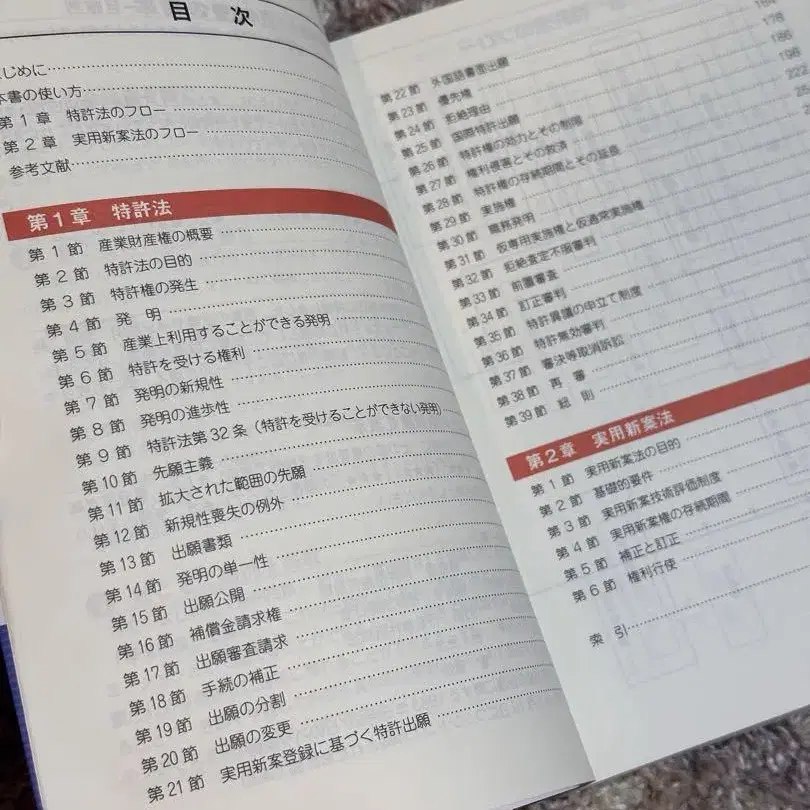 目 次
じめに
本書の使い方
第1章 特許法のフロー
第2章 実用新案法のフロー
参考文献
第1章 特許法
第1節 産業財産権の概要
第2節 特許法の目的
第3節 特許権の発生
第4節 発 明
第5節 産業上利用することができる発明
第6節 特許を受ける権利
第7節 発明の新規性
第8節 発明の進歩性
第9節 特許法第32条(特許を受けることができない発明)
第10節 先願主義
第11節 拡大された範囲の先願
第12節 新規性喪失の例外
第13節 出願書類
第14節 発明の単一性
第15節 出願公開
第16節 補償金請求権
第17節 出願審査請求
第18節 手続の補正
第19節 出願の分割
第20節 出願の変更
第21節 実用新案登録に基づく特許出願
第22節 外国語書面出願 184
第23節 優先権 178
第24節 拒絶理由 186
第25節 国際特許出願 198
第26節 特許権の効力とその制限 222
第27節 権利侵害とその救済
第28節 特許権の存続期間とその延長
第29節 実施権
第30節 職務発明
第31節 仮専用実施権と仮通常実施権
第32節 拒絶査定不服審判
第33節 前置審査
第34節 訂正審判
第35節 特許異議の申立て制度
第36節 特許無効審判
第37節 審決等取消訴訟
第38節 再 審
第39節 総 則
第2章 実用新案法
第1節 実用新案法の目的
第2節 基礎的要件
第3節 実用新案技術評価制度
第4節 実用新案権の存続期間
第5節 補正と訂正
第6節 権利行使
索 引